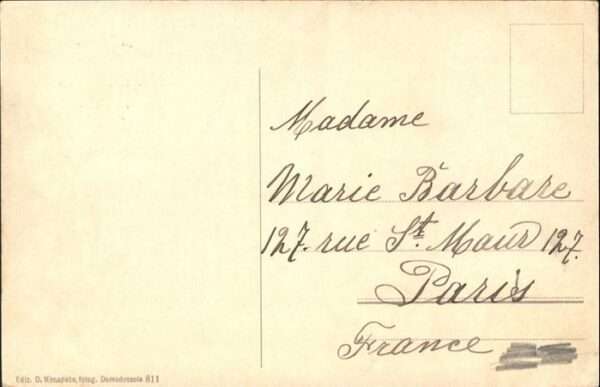 Madame
Marie Barbare
127. rue St. Maur 127.
Paris
France
Edit. D. fotog. 811